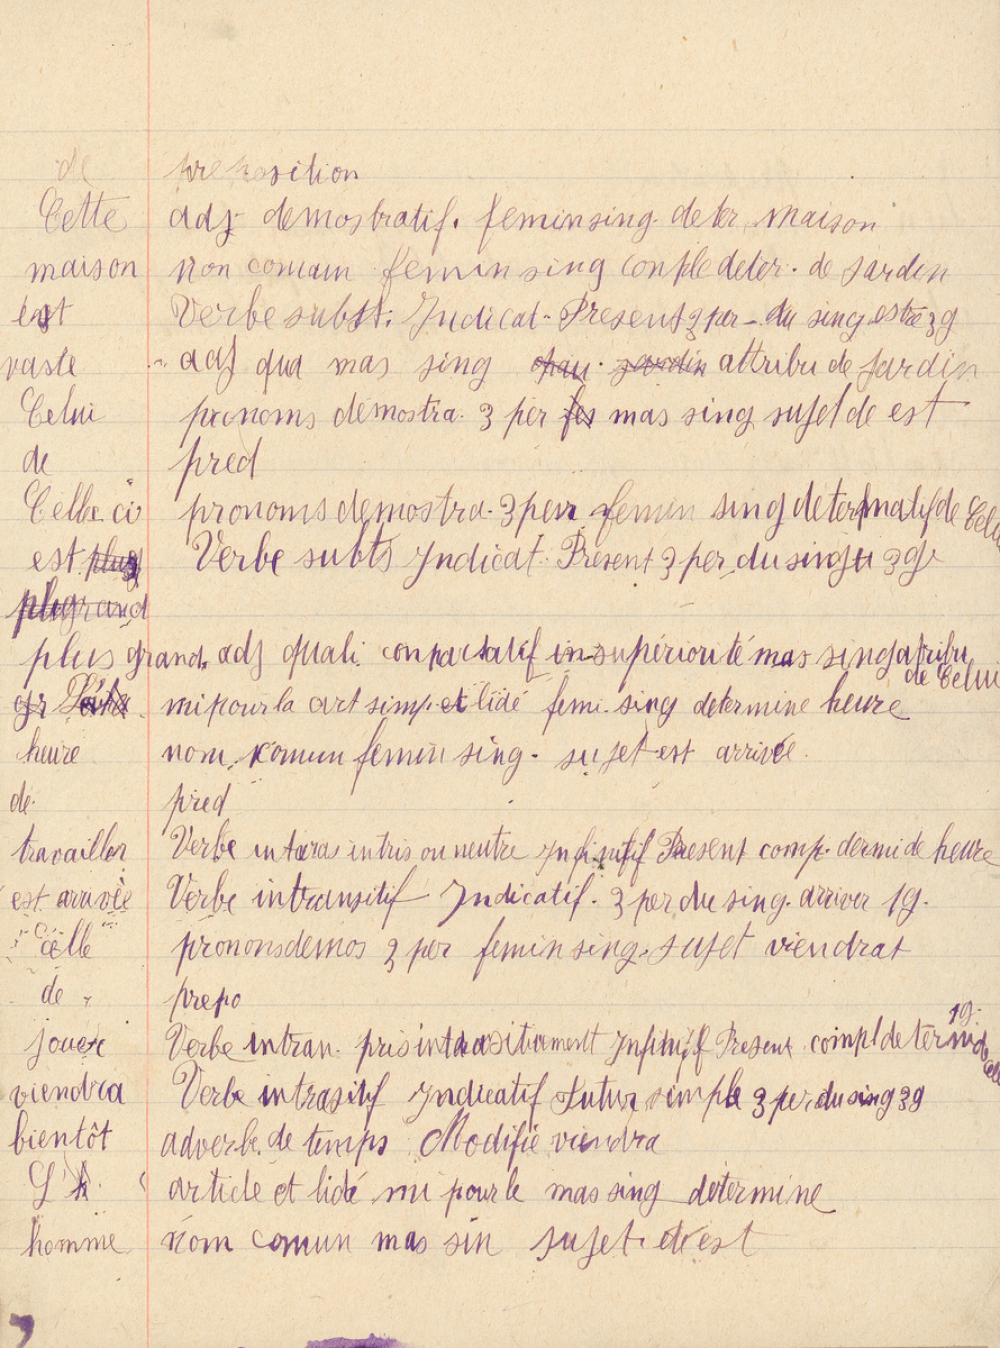 de preposition
Cette adj demostratif. feminsing. deter maison
maison non comum femin sing comple deter. de jardin
est Verbe subst. Indicat. Present 3 per. du sing estre 3 g
vaste adj qua mas sing jardin attribu de jardin
Celui pronoms démostra. 3 per fes mas sing sujet de est
de pred
Celle ci pronoms demostra. 3 per femin sing determatif de Celui
est plus Verbe subts Indicat. Présent 3 per du sing 3g
plus grand
plus grand. adj quali comparatif in supériorité mas sing atribu
de Celui
mi pour la art simp. et lidé femi. sing determine heure
heure nom komun femin sing. sujet est arrivée.
de. pred
travailler Verbe intaras intris ou neutre Infinitif Present comp. dermi de heure
est arrivée Verbe intransitif Indicatif. 3 per du sing. arriver 1g.
celle pronoms demos 3 per femin sing. sujet viendrat
de prepo
1g.
jouer Verbe intran. pris intrasitivement Infinitif Present compl determi de
viendra Verbe intrasitif Indicatif Futur simple 3 per du sing 3g
bientôt adverbe. de temps Modifie viendra
L h. article et lidé mi pour le mas sing determine
homme nom comun mas sin sujet. d'est